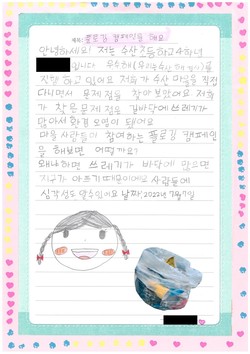 제목: 플로깅 캠페인을 해요
안녕하세요! 저는 수산초등학교 4학년
입니다
진행 하고 있어요 저희가 수산 마을을 직접
다니면서 문제점을 찾아 보았어요. 저희
가 찾은 문제점은 길바닥에 쓰레기가
많아서 환경 오염이 돼어요
마을 사람들이 참여하는 플로깅 캠페인
을 해보면 어떨까요?
왜냐하면 쓰레기가 바닥에 많으면
지구가 아프기 때문이에요 사람들에
심각성도 알수있어요 날짜, 2022년 7월7일